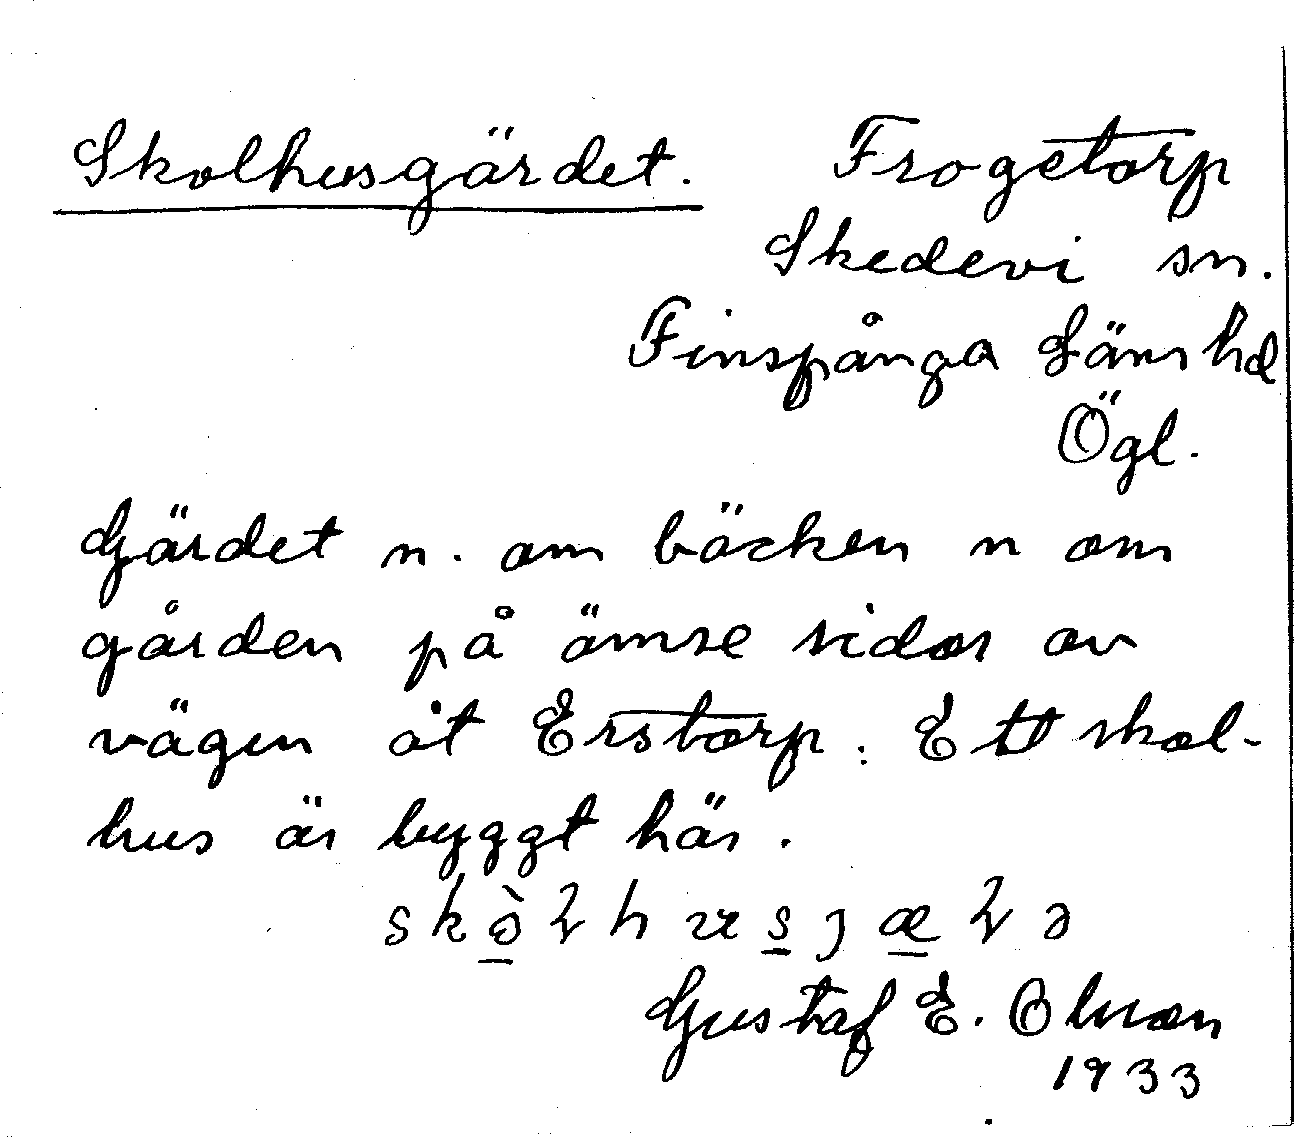 Skolhusgärdet. Frogetorp
Skedevi sn.
Finspånga Läns hd
Ögl.
Gärdet n. om bäcken n om
gården på ömse sidor av
vägen åt Erstorp. Ett skol-
hus är byggt här.
Gustaf E. Olsson
1933